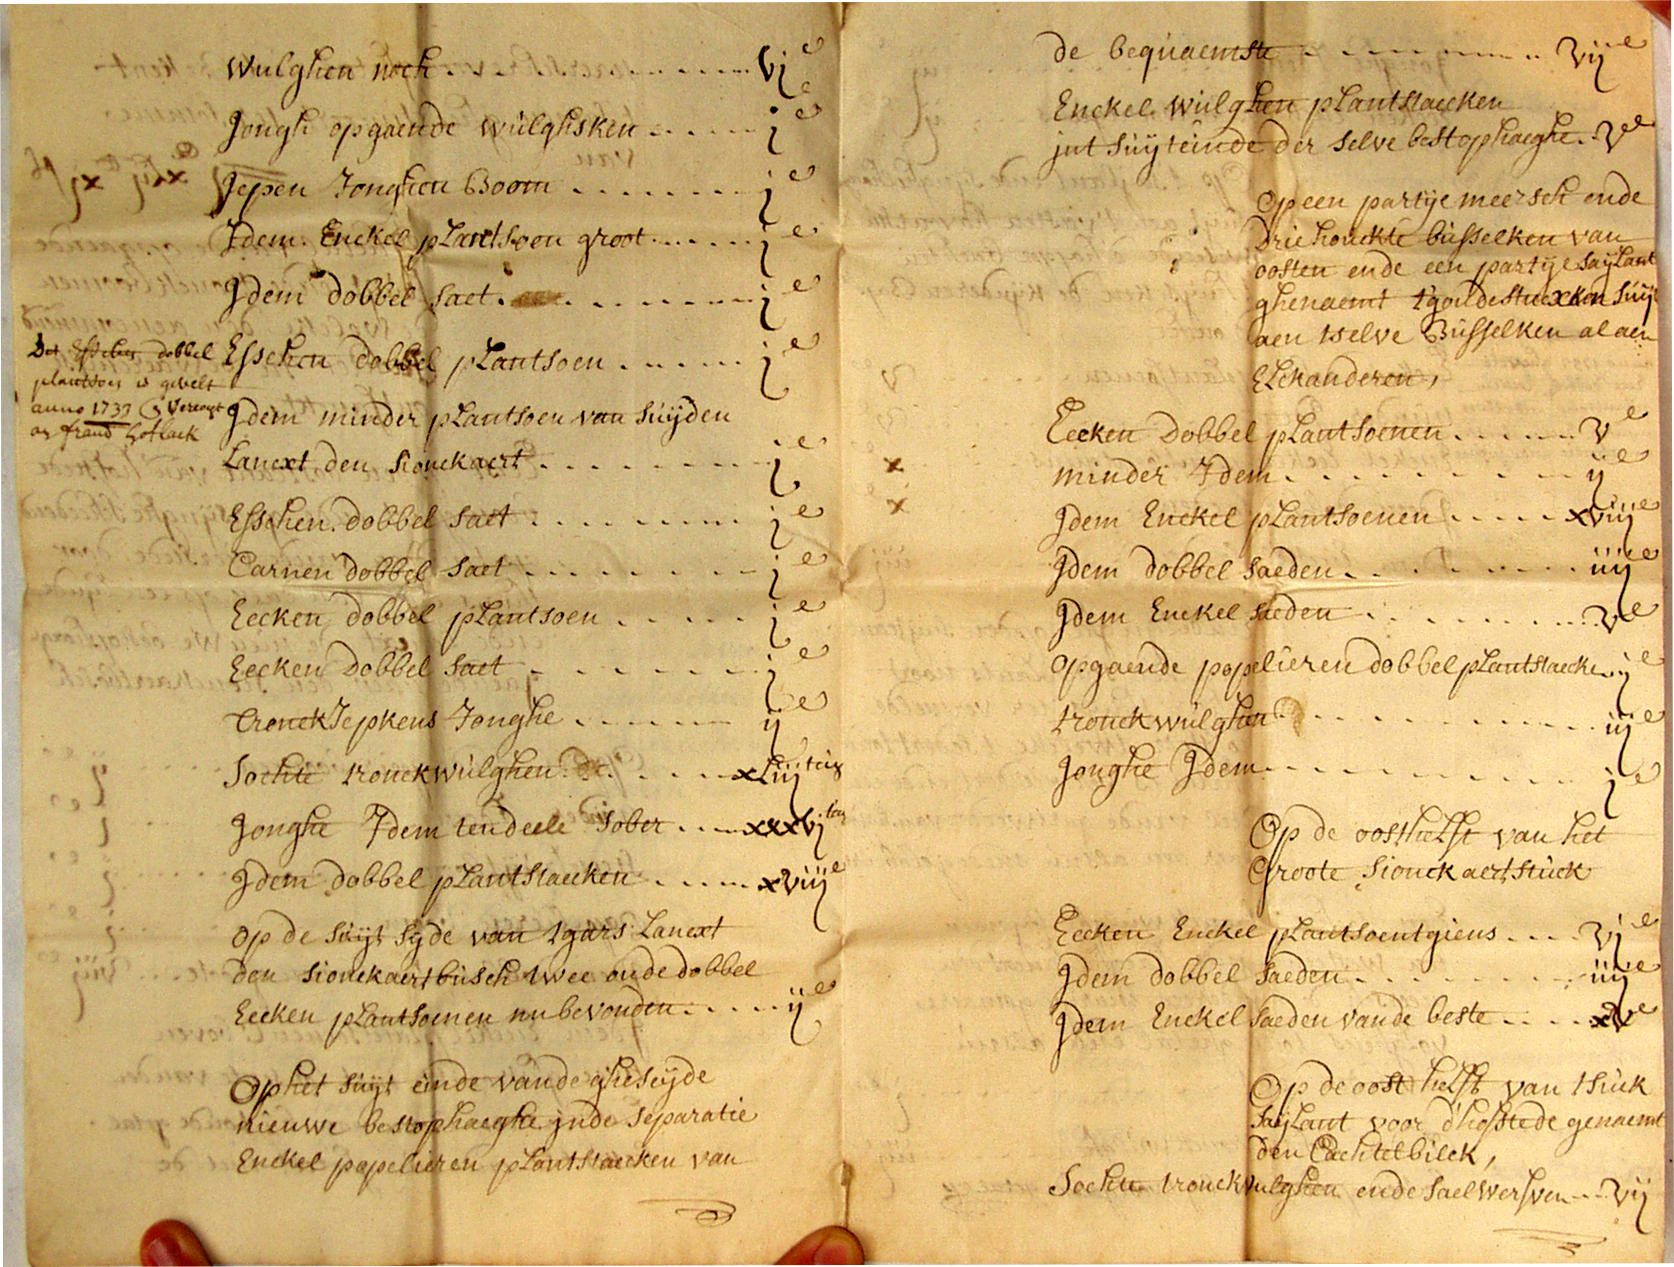 Wulghen noch . . . . . . . . . . vj e
Jongh opgaende wulghsken . . . . . j e
Jepen Jonghen Boom . . . . . . . j e
Idem Enckel plantsoen groot . . . . . . j e
Jdem dobbel saet . . . . . . . . . j e
Esschen dobbel plantsoen . . . . . . j e
Jdem minder plantsoen van suijden
Lanext den sionckaert . . . . . . . . j e
Esschen dobbel saet . . . . . . . . . j e
Carnen dobbel saet . . . . . . . . . j e
Eecken dobbel plantsoen . . . . . j e
Eecken Dobbel saet . . . . . . . . j e
tronck Jepkens Jonghe . . . . . . . ij e
Sochte tronckwulghen . . . . . xLiij tich
Jonghe Idem tendeele sober . . . . xxxvj tich
Jdem dobbel plantstaecken . . . . . xviij e
op de suijt sijde van tgars Lanext
den sionckaertbusch twee oude dobbel
Eecken plantsoenen nu bevonden . . . . . ij e
Op het suijt einde vande gheseijde
nieuwe bestophaeghe jnde separatie
Enckel popelieren plantstaecken van
Det Esschen dobbel
plantsoen is gevelt
anno 1737
de bequaemste . . . . . . . . . . vij e
Enckel wulghen plantstaecken
jnt suijteinde der selve bestophaeghe . v e
Op een partije meersch ende
Driehouckte busselken van
oosten ende een partije saijlant
ghenaemt tgoudestucxken suijt
aen tselve Busselken al aen
Elckanderen,
Eecken Dobbel plantsoenen . . . . . . v e
x minder Idem . . . . . . . . . ij e
x Jdem Enckel plantsoenen . . . . . xviij e
Jdem dobbel saeden . . . . . . . . iiij e
Jdem Enckel saeden . . . . . . . . . v e
opgaende popelieren dobbel plantstaecke . . j e
tronckwulghen . . . . . . . . . . iij e
Jonghe Jdem . . . . . . . . . . . j e
Op de oosthelft van het
Groote sionckaertstuck
Eecken Enckel plantsoentgiens . . . . vj e
Jdem dobbel saeden . . . . . . . . iiij e
Jdem Enckel saeden vande beste . . . . xv e
Op de oost helft van tstuck
saijlant voor d'hofstede genaemt
den Cachtelbilck,
Sochte tronckwulghen ende saelwerfven . . . vij